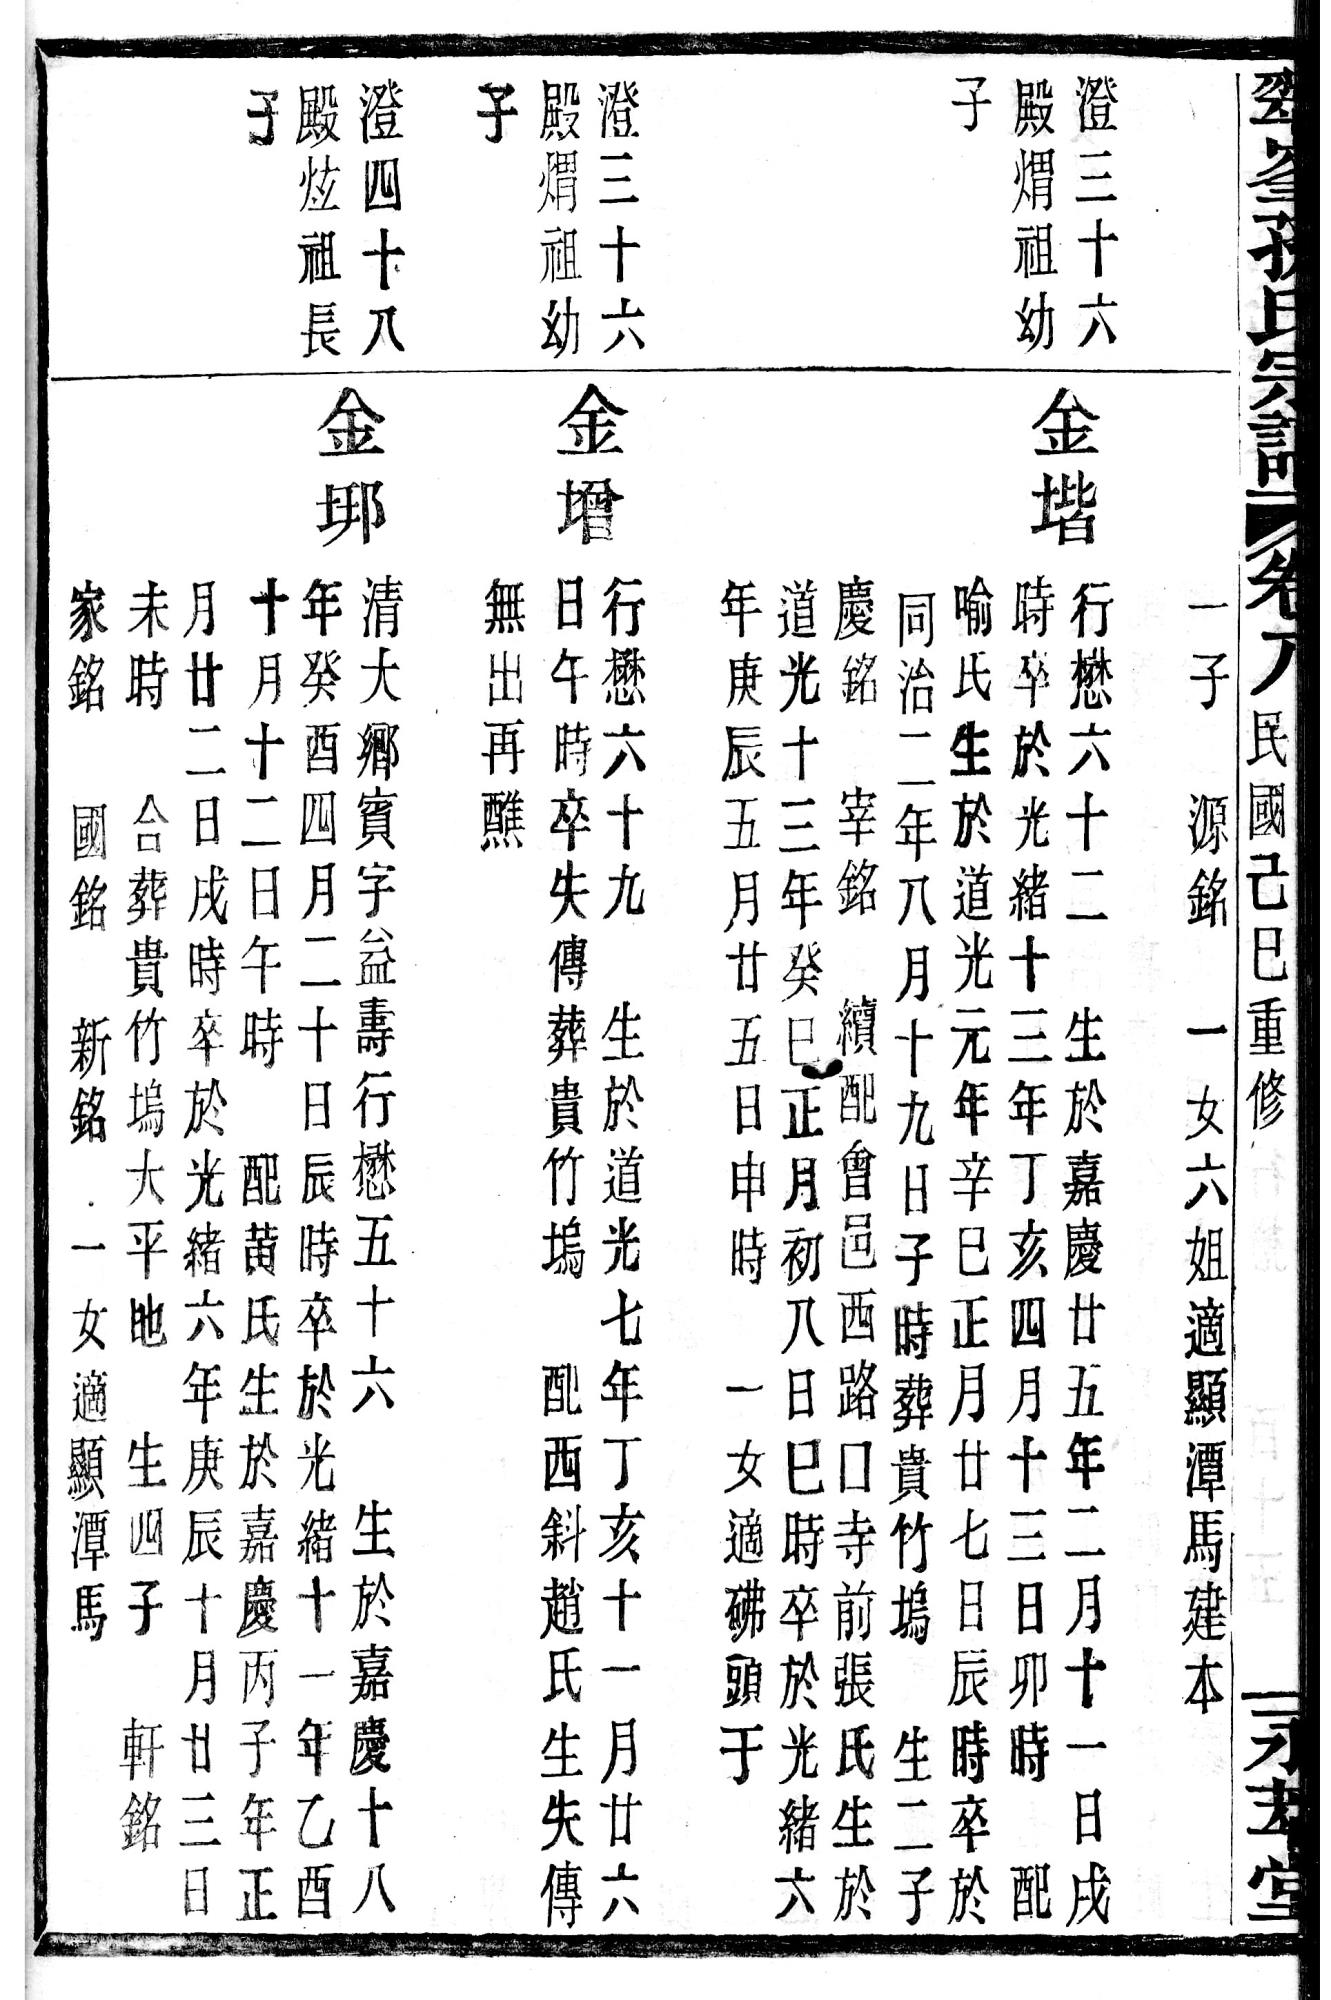 孫氏宗譜 卷八 民國己巳重修 永 堂
一子 源銘 一女六姐適顯潭馬建本
澄三十六
殿煟祖幼
子
金堦
行懋六十二 生於嘉慶廿五年二月十一日戌
時卒於光緒十三年丁亥四月十三日卯時 配
喻氏生於道光元年辛巳正月廿七日辰時卒於
同治二年八月十九日子時葬貴竹塢 生二子
慶銘 宰銘 續配曾邑西路口寺前張氏生於
道光十三年癸巳正月初八日巳時卒於光緒六
年庚辰五月廿五日申時 一女適砩頭于
澄三十六
殿煟祖幼
子
金增
行懋六十九 生於道光七年丁亥十一月廿六
日午時卒失傳葬貴竹塢 配西斜趙氏生失傳
無出再醮
澄四十八
殿炫祖長
子
金㘨
清大鄉賓字益壽行懋五十六 生於嘉慶十八
年癸酉四月二十日辰時卒於光緒十一年乙酉
十月十二日午時 配黃氏生於嘉慶丙子年正
月廿二日戌時卒於光緒六年庚辰十月廿三日
未時 合葬貴竹塢大平地 生四子 軒銘
家銘 國銘 新銘 一女適顯潭馬